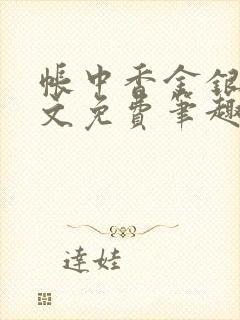 帐中香金银
文免费笔趣
達娃